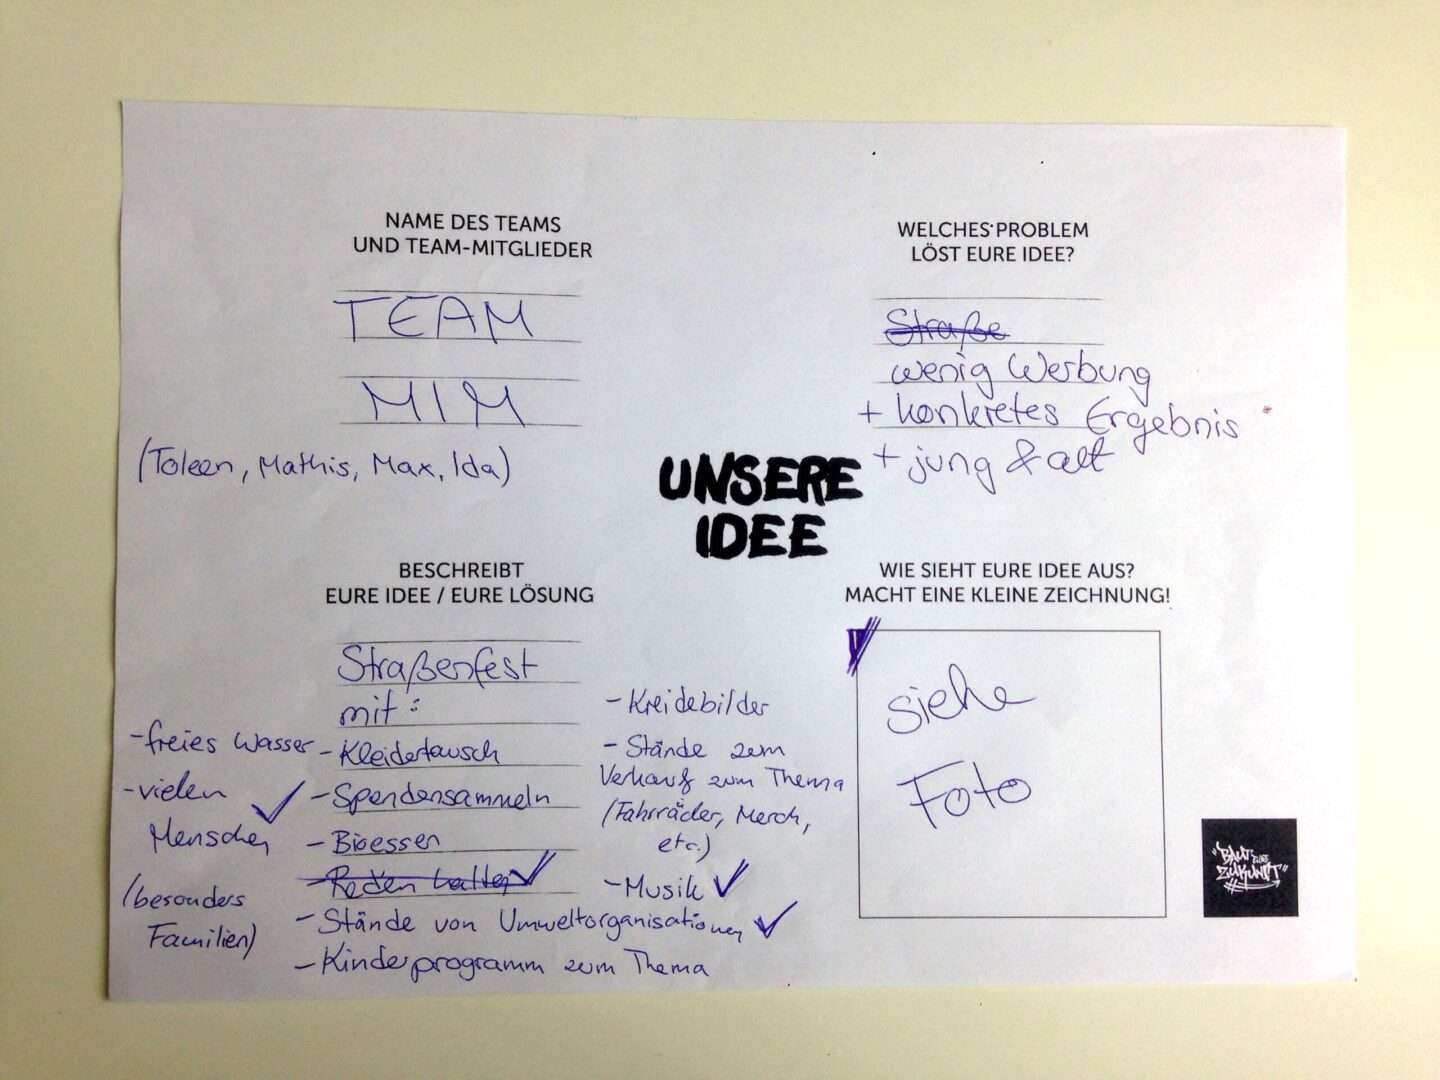 NAME DES TEAMS
UND TEAM-MITGLIEDER
TEAM
MIM
(Toleen, Mathis, Max, Ida)
WELCHES PROBLEM
LÖST EURE IDEE?
Straße
wenig Werbung
+ konkretes Ergebnis
+ jung & alt
UNSERE
IDEE
BESCHREIBT
EURE IDEE / EURE LÖSUNG
Straßenfest
mit:
- Kleidertausch
- Spendensammeln
- Bioessen
- Reden halten ✓
- Stände von Umweltorganisationen ✓
- Kinderprogramm zum Thema
- freies Wasser
- vielen
Menschen ✓
(besonders
Familien)
- Kreidebilder
- Stände zum
Verkauf zum Thema
(Fahrräder, Merch,
etc.)
- Musik ✓
WIE SIEHT EURE IDEE AUS?
MACHT EINE KLEINE ZEICHNUNG!
siehe
Foto
"BAUT EURE
ZUKUNFT"